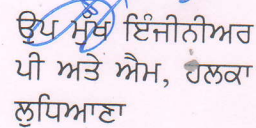 ਉਪ ਮੁੱਖ ਇੰਜੀਨੀਅਰ
ਪੀ ਅਤੇ ਐਮ, ਹਲਕਾ
ਲੁਧਿਆਣਾ